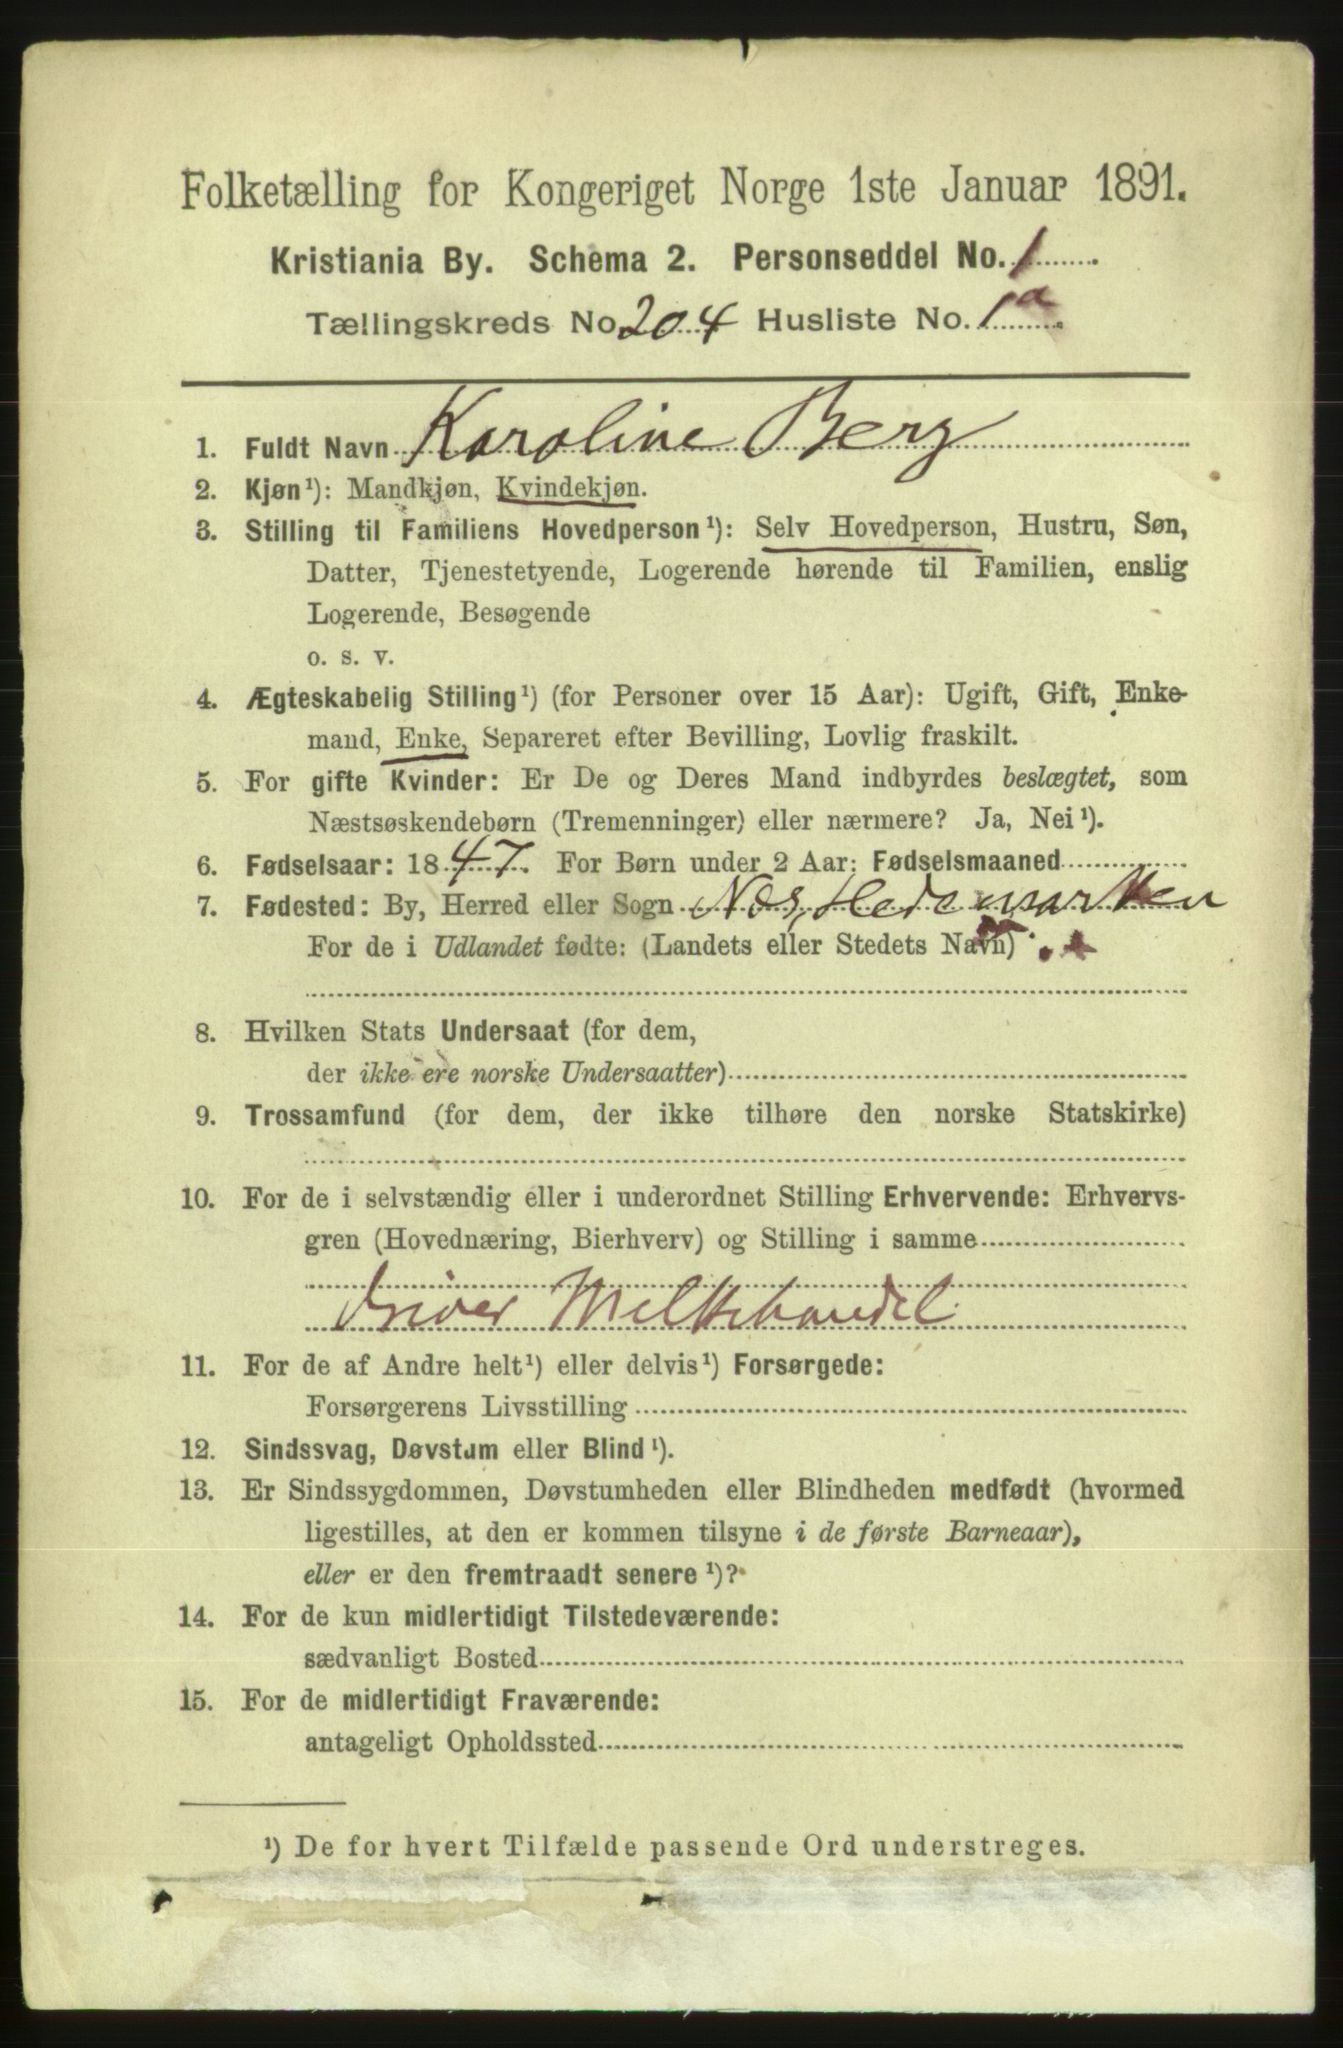 Folketælling for Kongeriget Norge 1ste Januar 1891.
Kristiania By. Schema 2. Personseddel No. 1
Tællingskreds No 204 Husliste No. 1a
1. Fuldt Navn Karoline Berg
2. Kjøn¹): Mandkjøn, Kvindekjøn.
3. Stilling til Familiens Hovedperson¹): Selv Hovedperson, Hustru, Søn,
Datter, Tjenestetyende, Logerende hørende til Familien, enslig
Logerende, Besøgende
o. s. v.
4. Ægteskabelig Stilling¹) (for Personer over 15 Aar): Ugift, Gift, Enke-
mand, Enke, Separeret efter Bevilling, Lovlig fraskilt.
5. For gifte Kvinder: Er De og Deres Mand indbyrdes beslægtet, som
Næstsøskendebørn (Tremenninger) eller nærmere? Ja, Nei¹).
6. Fødselsaar: 1847. For Børn under 2 Aar: Fødselsmaaned
7. Fødested: By, Herred eller Sogn Næs, Hedemarken
For de i Udlandet fødte: (Landets eller Stedets Navn)
8. Hvilken Stats Undersaat (for dem,
der ikke ere norske Undersaatter)
9. Trossamfund (for dem, der ikke tilhøre den norske Statskirke)
10. For de i selvstændig eller i underordnet Stilling Erhvervende: Erhvervs-
gren (Hovednæring, Bierhverv) og Stilling i samme
driver Melkehandel.
11. For de af Andre helt¹) eller delvis¹) Forsørgede:
Forsørgerens Livsstilling
12. Sindssvag, Døvstum eller Blind¹).
13. Er Sindssygdommen, Døvstumheden eller Blindheden medfødt (hvormed
ligestilles, at den er kommen tilsyne i de første Barneaar),
eller er den fremtraadt senere¹)?
14. For de kun midlertidigt Tilstedeværende:
sædvanligt Bosted
15. For de midlertidigt Fraværende:
antageligt Opholdssted
¹) De for hvert Tilfælde passende Ord understreges.